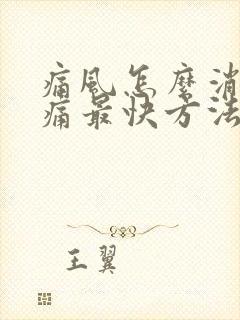 痛风怎麽消
痛最快方法
王翼